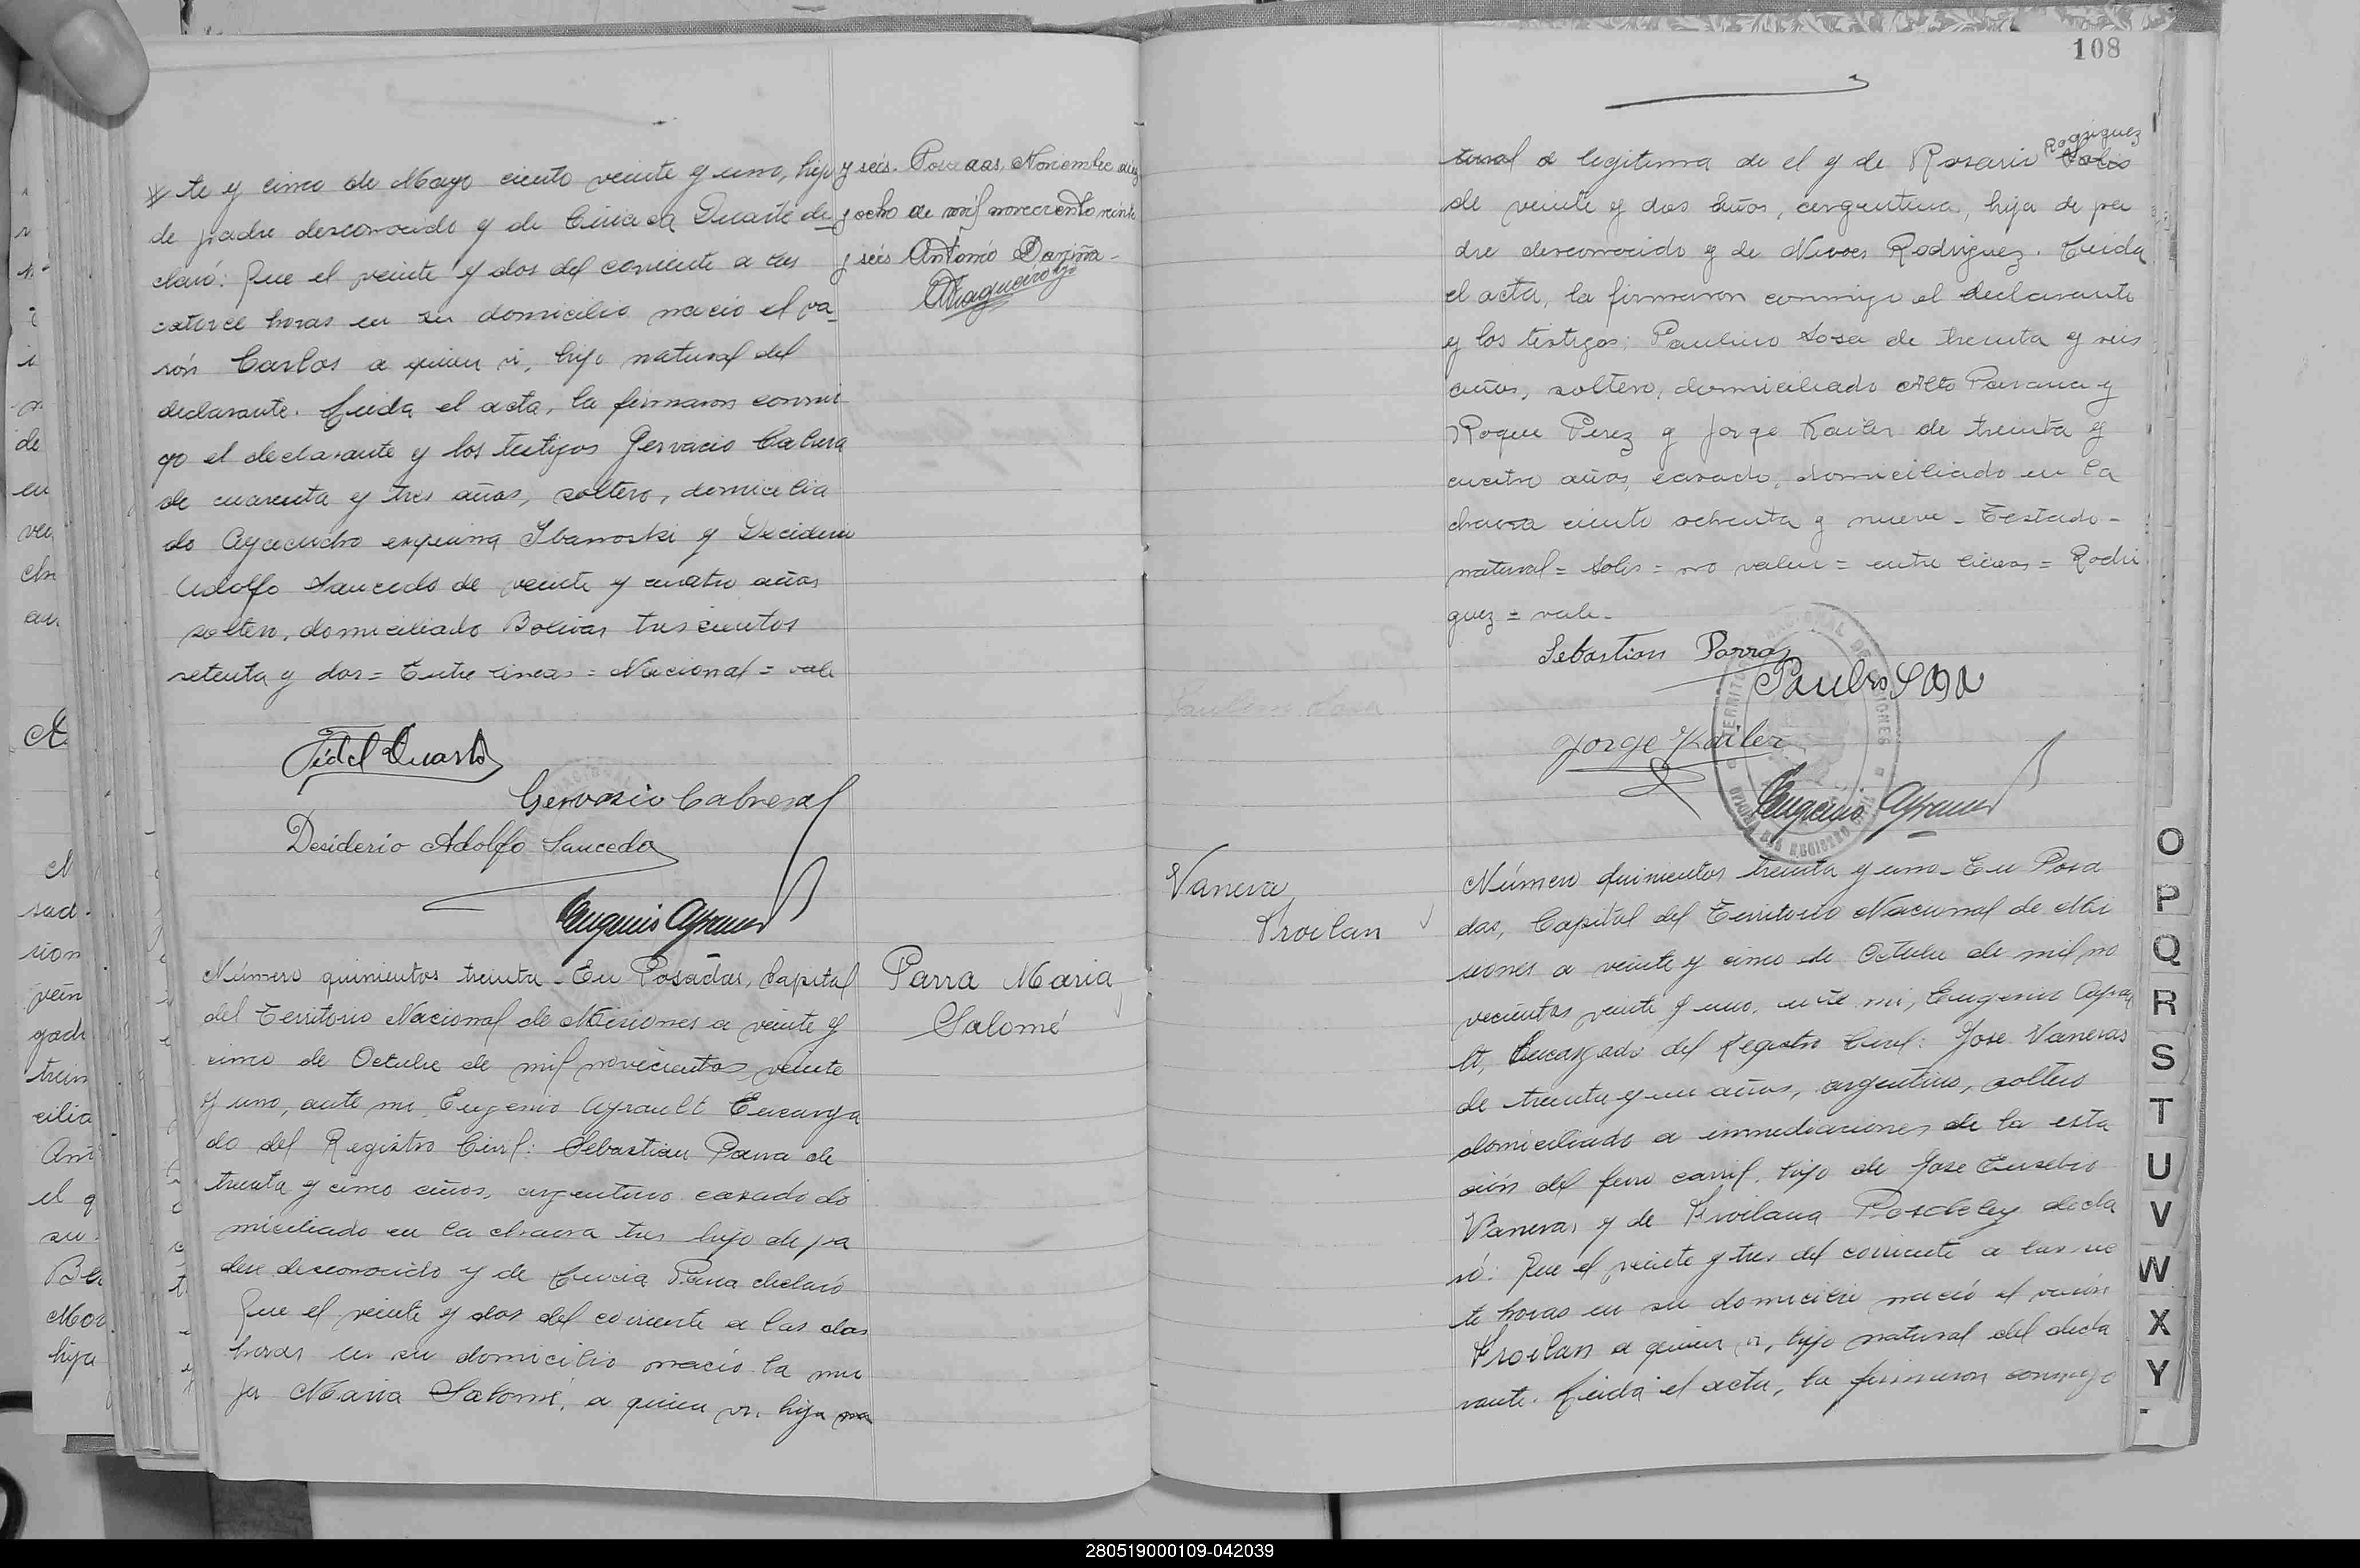 108
te y cinco de Mayo ciento veinte y uno, hijo
de padre desconocido y de Ciriaca Duarte de_
claró: Que el veinte y dos del corriente a las
catorce horas en su domicilio nació el va_
rón Carlos a quien vi, hijo natural del
declarante. Leida el acta, la firmaron conmi
go el declarante y los testigos Gervacio Cabrera
de cuarenta y tres años, soltero, domicilia
do Ayacucho esquina y Deciderio
Adolfo Saucedo de veinte y cuatro años
soltero, domiciliado Bolivar trescientos
setenta y dos = Entre lineas = Nacional = vale
y seis. Posadas, Noviembre diez
y ocho de mil novecientos veinte
y seis Antonio
Fidel Duarte
Gervasio Cabrera
Desiderio Adolfo Saucedo
Eugenio Ayrault
Número quinientos treinta _ En Posadas, Capital
del Territorio Nacional de Misiones a veinte y
cinco de Octubre de mil novecientos veinte
y uno, ante mi, Eugenio Ayrault Encarga
do del Registro Civil: Sebastian Parra de
treinta y cinco años, argentino casado do
miciliado en la chacra tres hijo de pa
dre desconocido y de Lucia Parra declaró
Que el veinte y dos del corriente a las dos
horas en su domicilio nació la mu
jer Maria Salomé, a quien vi, hija na
Parra Maria
Salomé
tural a legitima de el y de Rosario Solis Rodriguez
de veinte y dos años, argentina, hija de pa
dre desconocido y de Nieves Rodriguez. Leida
el acta, la firmaron conmigo el declarante
y los testigos: Paulino Sosa de treinta y seis
años, soltero, domiciliado Alto Parana y
Roque Perez y Jorge Kailer de treinta y
cuatro años, casado, domiciliado en la
chacra ciento ochenta y nueve _ Testado -
natural = Solis = no valen = entre lineas = Rodri
guez = vale.
Sebastian Parra
Paulino Sosa
Paulino Sosa
Jorge Kailer
Eugenio Ayrault
Vanera
Froilan
Número quinientos treinta y uno _ En Posa
das, Capital del Territorio Nacional de Mi
siones a veinte y cinco de Octubre de mil no
vecientos veinte y uno, ante mi, Eugenio Ayrau
lt, Encargado del Registro Civil: Jose Vaneras
de treinta y un años, argentino, soltero
domiciliado a inmediaciones de la esta
ción del ferro carril, hijo de Jose Eusebio
Vaneras y de Froilana decla
ró: Que el veinte y tres del corriente a las sie
te horas en su domicilio nació el varón
Froilan a quien vi, hijo natural del decla
rante. Leida el acta, la firmaron conmigo
O
P
Q
R
S
T
U
V
W
X
Y
280519000109-042039